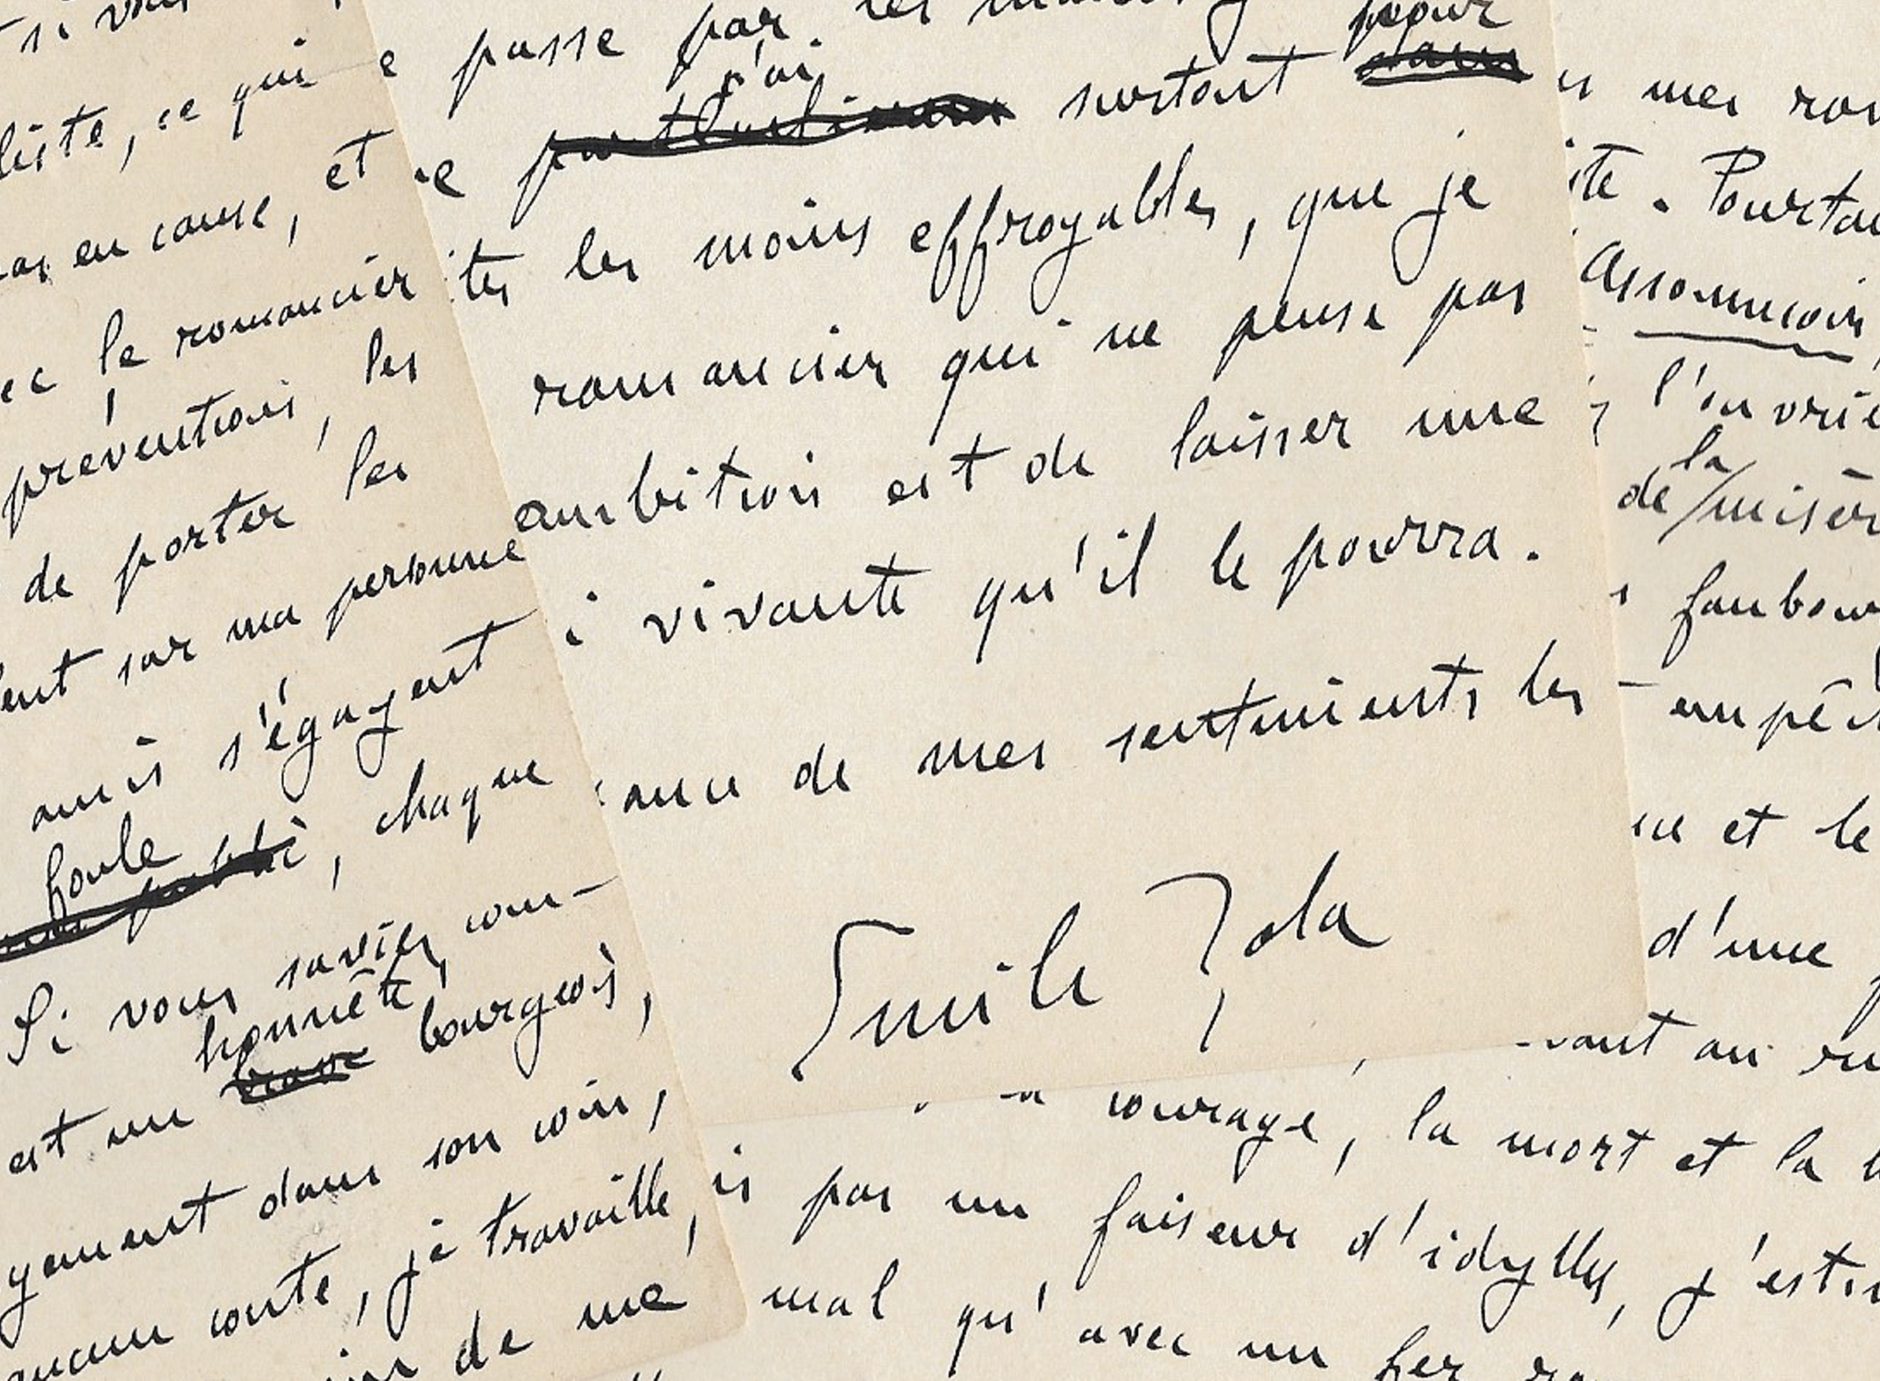 si vous
liste, ce qui
pas en cause, et
le romancier
préventions, les
de porter les
sur ma personne
amis s'égayent
foule
public, chaque
Si vous saviez, com-
honnête
est un brave bourgeois,
dans son coin,
aucun conte, je travaille,
de me
e passe par les
j'ai pour
particulièrement surtout dans
les moins effroyables, que je
romancier qui ne pense pas
ambition est de laisser une
i vivante qu'il le pourra.
ance de mes sentiments les
Emile Zola
mes rom
te. Pourtan
Assommoir,
l'ouvrie
la
de misèr
faubour
empês
et le
d'une
vant au ru
courage, la mort et la
is pas un faiseur d'idylles, j'estim
mal qu'avec un fer ro